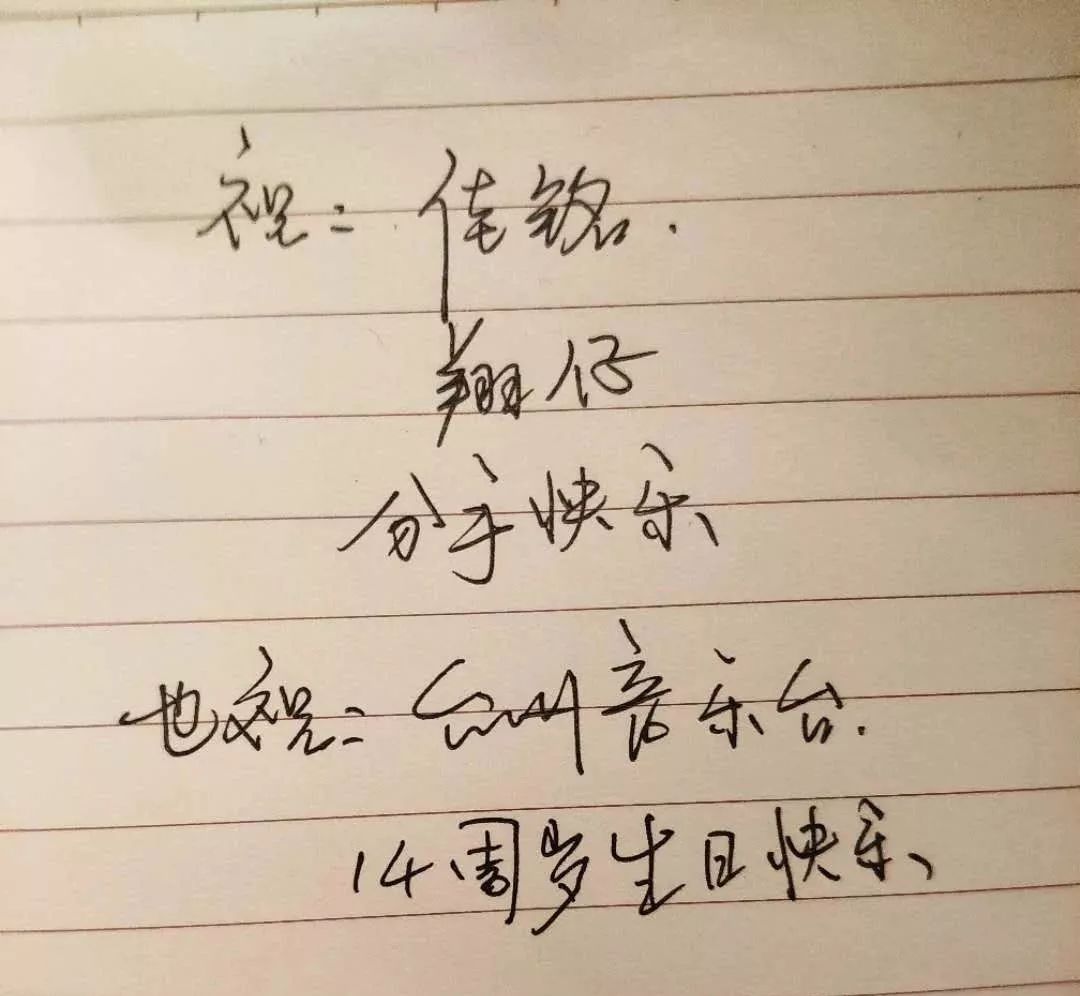 祝：佳铭.
翔仔
分手快乐
也祝：台州音乐台.
14周岁生日快乐